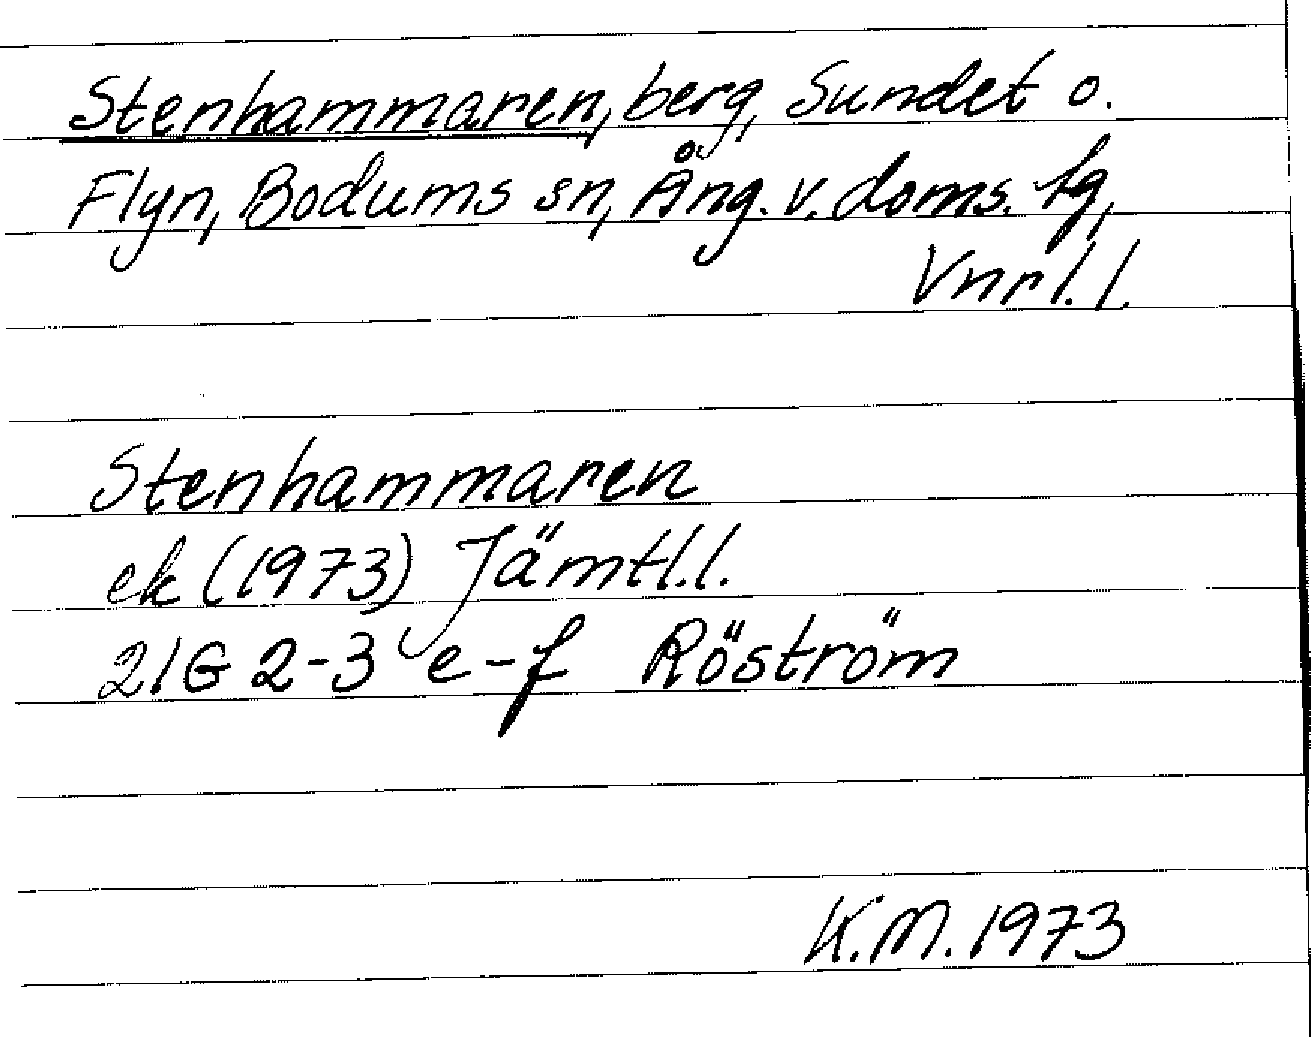 Stenhammaren, berg, Sundet o.
Flyn, Bodums sn, Ång. v. doms. fg,
Vnrl. l.
Stenhammaren
ek (1973) Jämtl. l.
21G 2-3 e-f Röström
K.M. 1973